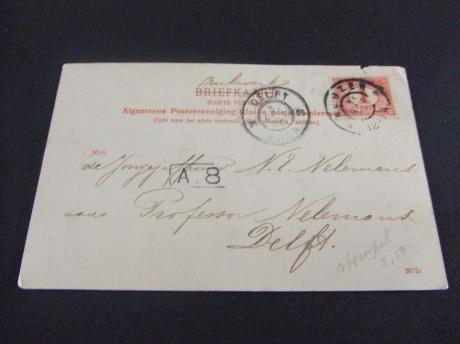 Drukwerk
BRIEFKAART
(CARTE POSTALE)
Algemeene Postvereeniging (Union postale universelle)
Zijde voor het adres bestemd.
DELFT
Aan
de N. E. Nelemans
A 8
Professor Nelemans
Delft.
stempel
2,50